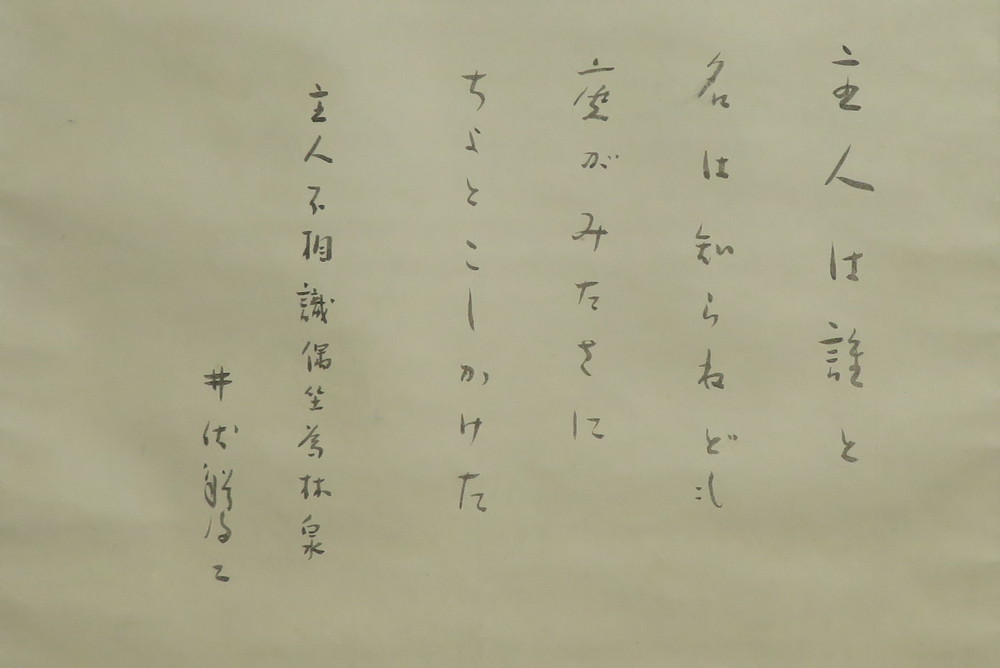 主人は誰と
名は知らねども
庭がみたさに
ちよとこしかけた
主人不相識偶坐為林泉
井伏鱒二